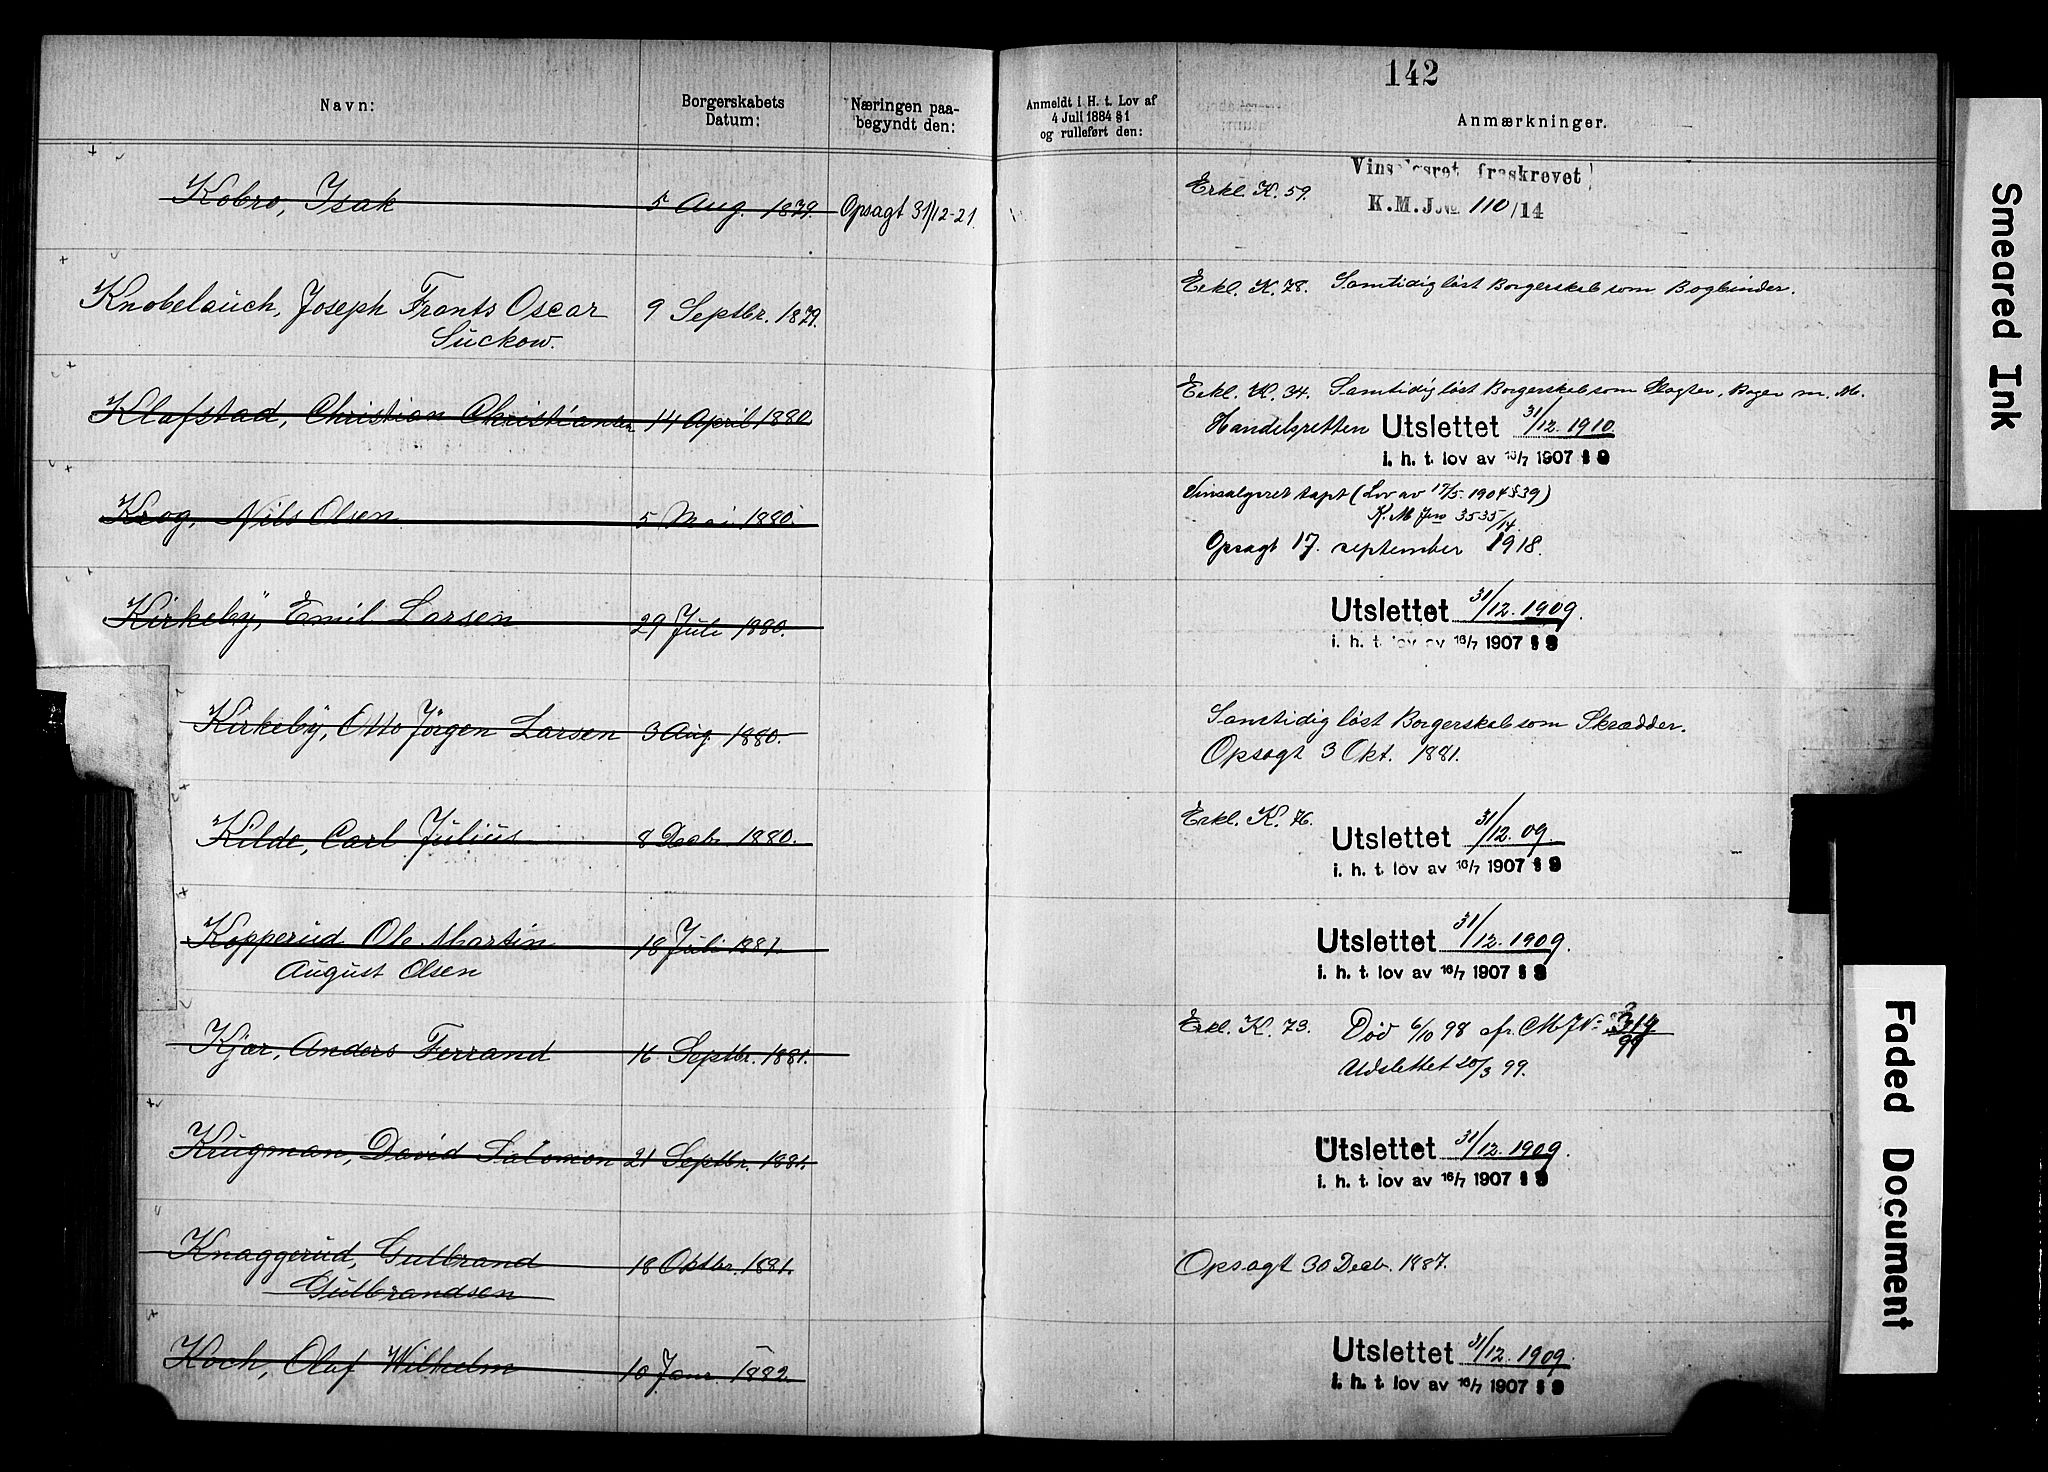 142
Navn:
Borgerskabets Datum:
Næringen paabegyndt den:
Anmeldt i H. t. Lov af 4 Juli 1884 § 1 og rulleført den:
Anmærkninger.
Kobro, Isak 5 Aug. 1879. Opsagt 31/12-21. Erkl. K. 59. fraskrevet
K. M. J. No 110/14
Knobelauch, Joseph Frants Oscar 9 Septbr. 1879. Erkl. K. 78. Samtidig löst Borgerskab som Bogbinder.
Suckow.
Klafstad, Christian Christiansen 14 April 1880 Erkl. K. 34. Samtidig löst Borgerskab som Slagter, Bager m. M.
Handelsretten Utslettet 31/12. 1910.
i. h. t. lov av 16/7 1907 § 9
Krog, Nils Olsen 5 Mai 1880. Vinsalgsret tapt (Lov av 17/5 1904 § 39)
K. M Jno 3535/14.
Opsagt 17. september 1918.
Kirkeby, Emil Larsen 29 Juli 1880. Utslettet 31/12. 1909.
i. h. t. lov av 16/7 1907 § 9
Kirkeby, Otto Jörgen Larsen 3 Aug 1880. Samtidig löst Borgerskab som Skrædder.
Opsagt 3 Okt. 1881.
Kilde, Carl Julius 8 Decb. 1880. Erkl. K. 76. Utslettet 31/12. 09.
i. h. t. lov av 16/7 1907 § 9
Kopperud Ole Martin 18 Juli 1881. Utslettet 31/12. 1909.
August Olsen i. h. t. lov av 16/7 1907 § 9
Kjær, Anders Ferrand 16 Septbr. 1881. Erkl. K. 73. Död 6/10 98
Udslettet 20/3 99.
Krugman, David Salomon 21 Septbr. 1881. Utslettet 31/12. 1909.
i. h. t. lov av 16/7 1907 § 9
Knaggerud, Gulbrand 18 Oktbr. 1881. Opsagt 30 Decb. 1887.
Gulbrandsen
Koch, Olaf Wilhelm 10 Janr 1882. Utslettet 31/12. 1909.
i. h. t. lov av 16/7 1907 § 9
Smeared Ink
Faded Document